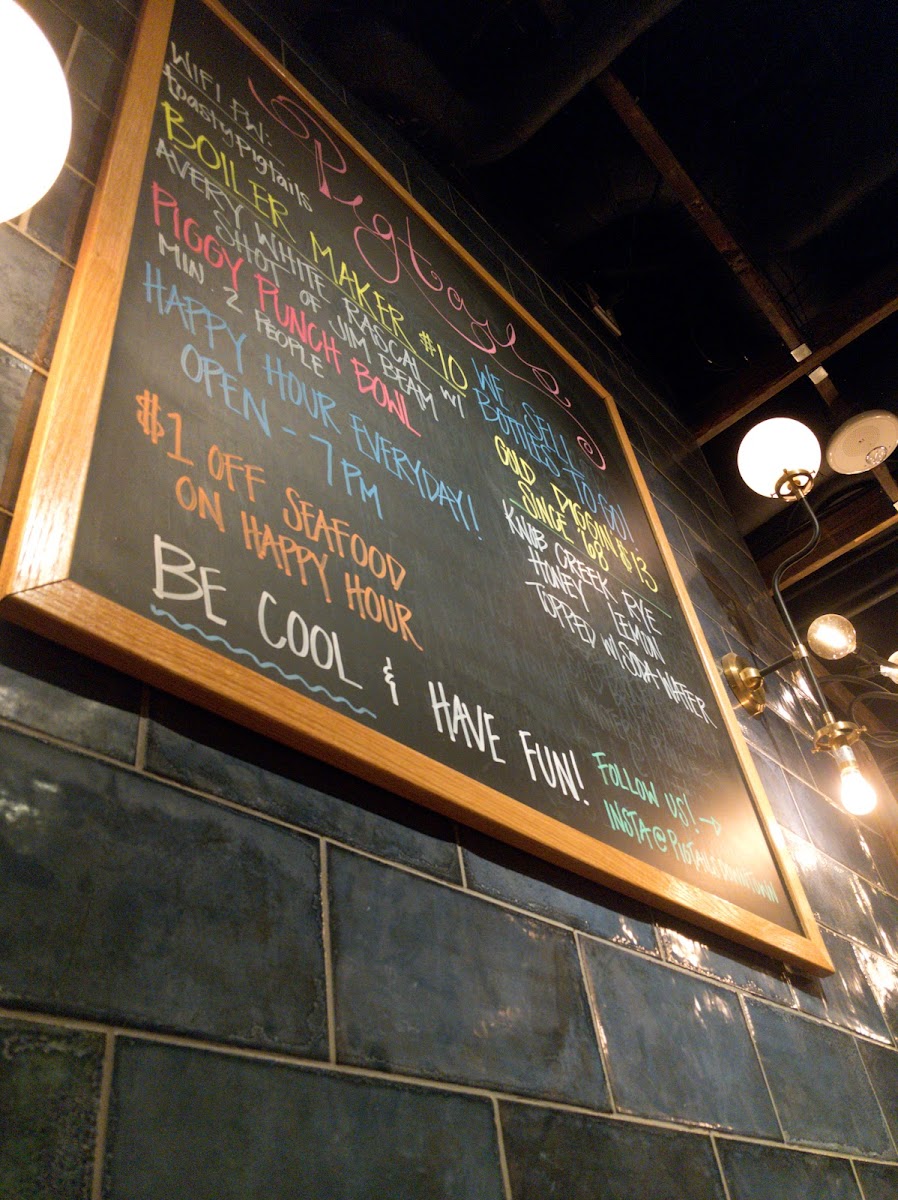 Pigtails
WIFI PW:
toastypigtails
BOILER MAKER $10
AVERY WHITE RASCAL W/
SHOT OF JIM BEAM
PIGGY PUNCH BOWL
MIN. 2 PEOPLE
HAPPY HOUR EVERYDAY!
OPEN - 7PM
$1 OFF SEAFOOD
ON HAPPY HOUR
BE COOL & HAVE FUN!
WE SELL
BOTTLES TO GO!
GOLD DIGGIN' $13
SINCE '68
KNOB CREEK RYE
HONEY LEMON
TOPPED W/ SODA WATER
FOLLOW US! →
INSTA@PIGTAILSDOWNTOWN